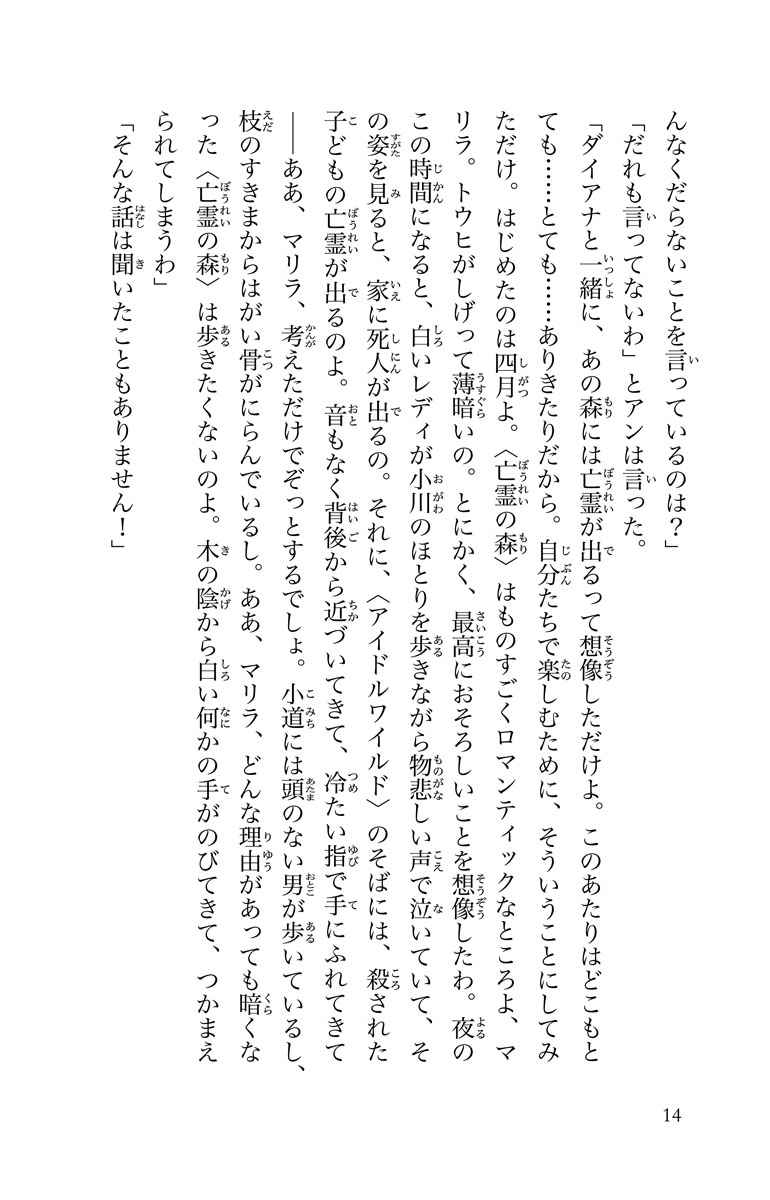 んなくだらないことを言っているのは？」
「だれも言ってないわ」とアンは言った。
「ダイアナと一緒に、あの森には亡霊が出るって想像しただけよ。このあたりはどこもと
ても……とても……ありきたりだから。自分たちで楽しむために、そういうことにしてみ
ただけ。はじめたのは四月よ。〈亡霊の森〉はものすごくロマンティックなところよ、マ
リラ。トウヒがしげって薄暗いの。とにかく、最高におそろしいことを想像したわ。夜の
この時間になると、白いレディが小川のほとりを歩きながら物悲しい声で泣いていて、そ
の姿を見ると、家に死人が出るの。それに、〈アイドルワイルド〉のそばには、殺された
子どもの亡霊が出るのよ。音もなく背後から近づいてきて、冷たい指で手にふれてきて
――ああ、マリラ、考えただけでぞっとするでしょ。小道には頭のない男が歩いているし、
枝のすきまからはがい骨がにらんでいるし。ああ、マリラ、どんな理由があっても暗くな
った〈亡霊の森〉は歩きたくないのよ。木の陰から白い何かの手がのびてきて、つかまえ
られてしまうわ」
「そんな話は聞いたこともありません！」
14